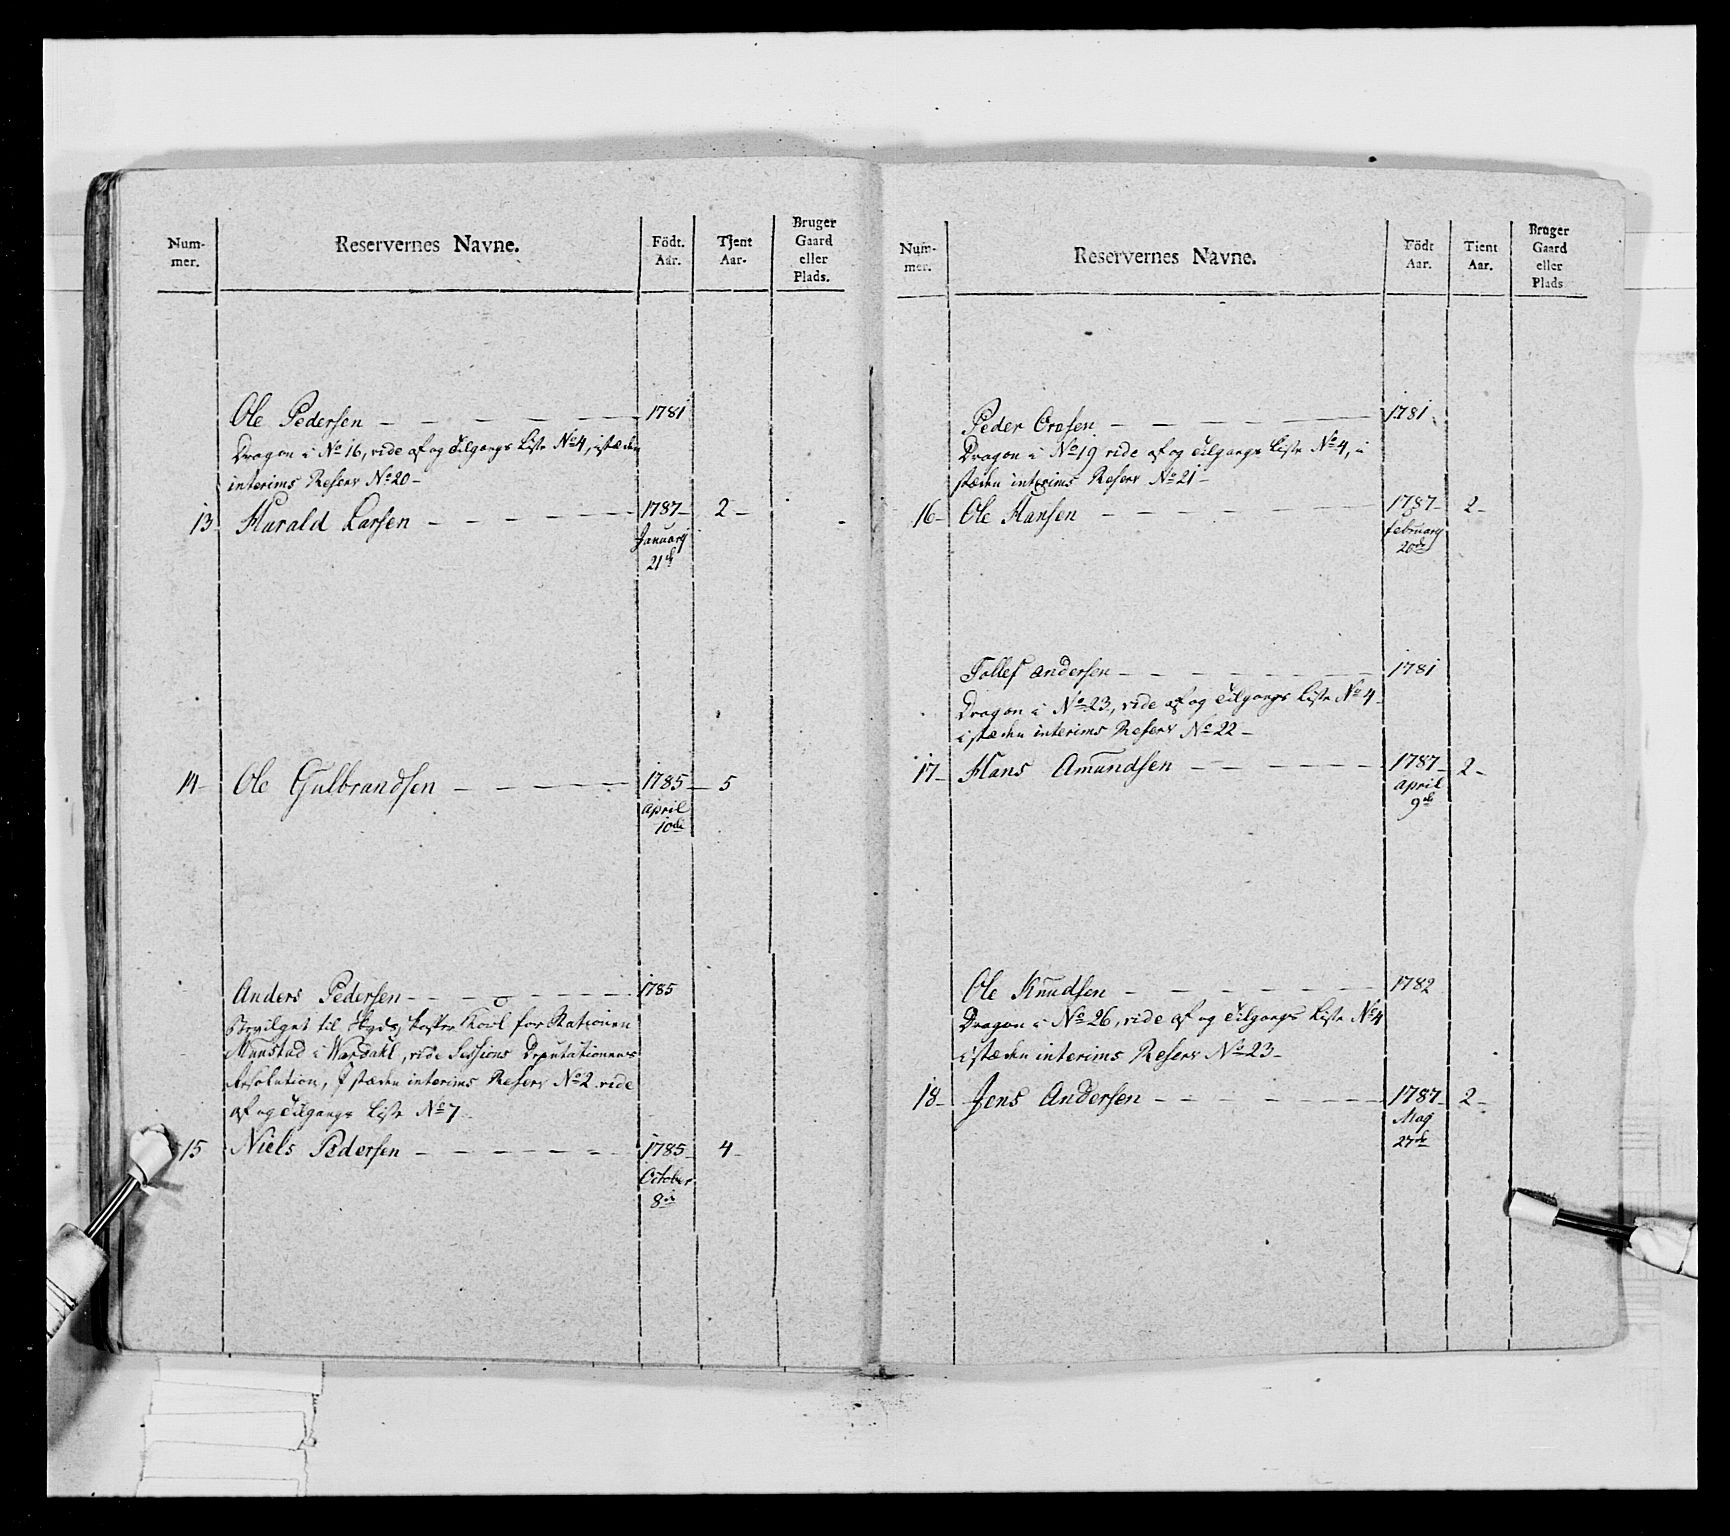 Num-
mer.
Reservernes Navne.
Födt.
Aar.
Tjent
Aar.
Bruger
Gaard
eller
Plads.
Ole Pedersen — 1781
Dragon i No 16, vide af og Tilgangs Liste No 4, istæden
interims Reserv No 20 —
13 Harald Larsen — 1787 — 2 —
January
21de
14 — Ole Gulbrandsen — 1785 — 5
April
10de
Anders Pedersen — 1785
Bevilget til Skyds, for Stationen
i Wardahl, vide Sessions Deputationens
Resolution, I stæden interims Reserv No 2 vide
af og Tilgangs Liste No 7
15 Niels Pedersen — 1785 — 4 —
October
8de
Num-
mer.
Reservernes Navne.
Födt
Aar.
Tient
Aar.
Bruger
Gaard
eller
Plads
Peder Olesen — 1781
Dragon i No 19 vide af og Tilgangs Liste No 4, i
stæden interims Reserv No 21 —
16 — Ole Hansen — 1787 — 2 —
february
20de
Tollef Andersen — 1781
Dragon i No 23, vide af og Tilgangs Liste No 4
istæden interims Reserv No 22 —
17 — Hans Amundsen — 1787 — 2 —
April
9de
Ole Knudsen — 1782
Dragon i No 26, vide af og Tilgangs Liste No 4
istæden interims Reserv No 23 —
18 — Jens Andersen — 1787 — 2 —
May
27de